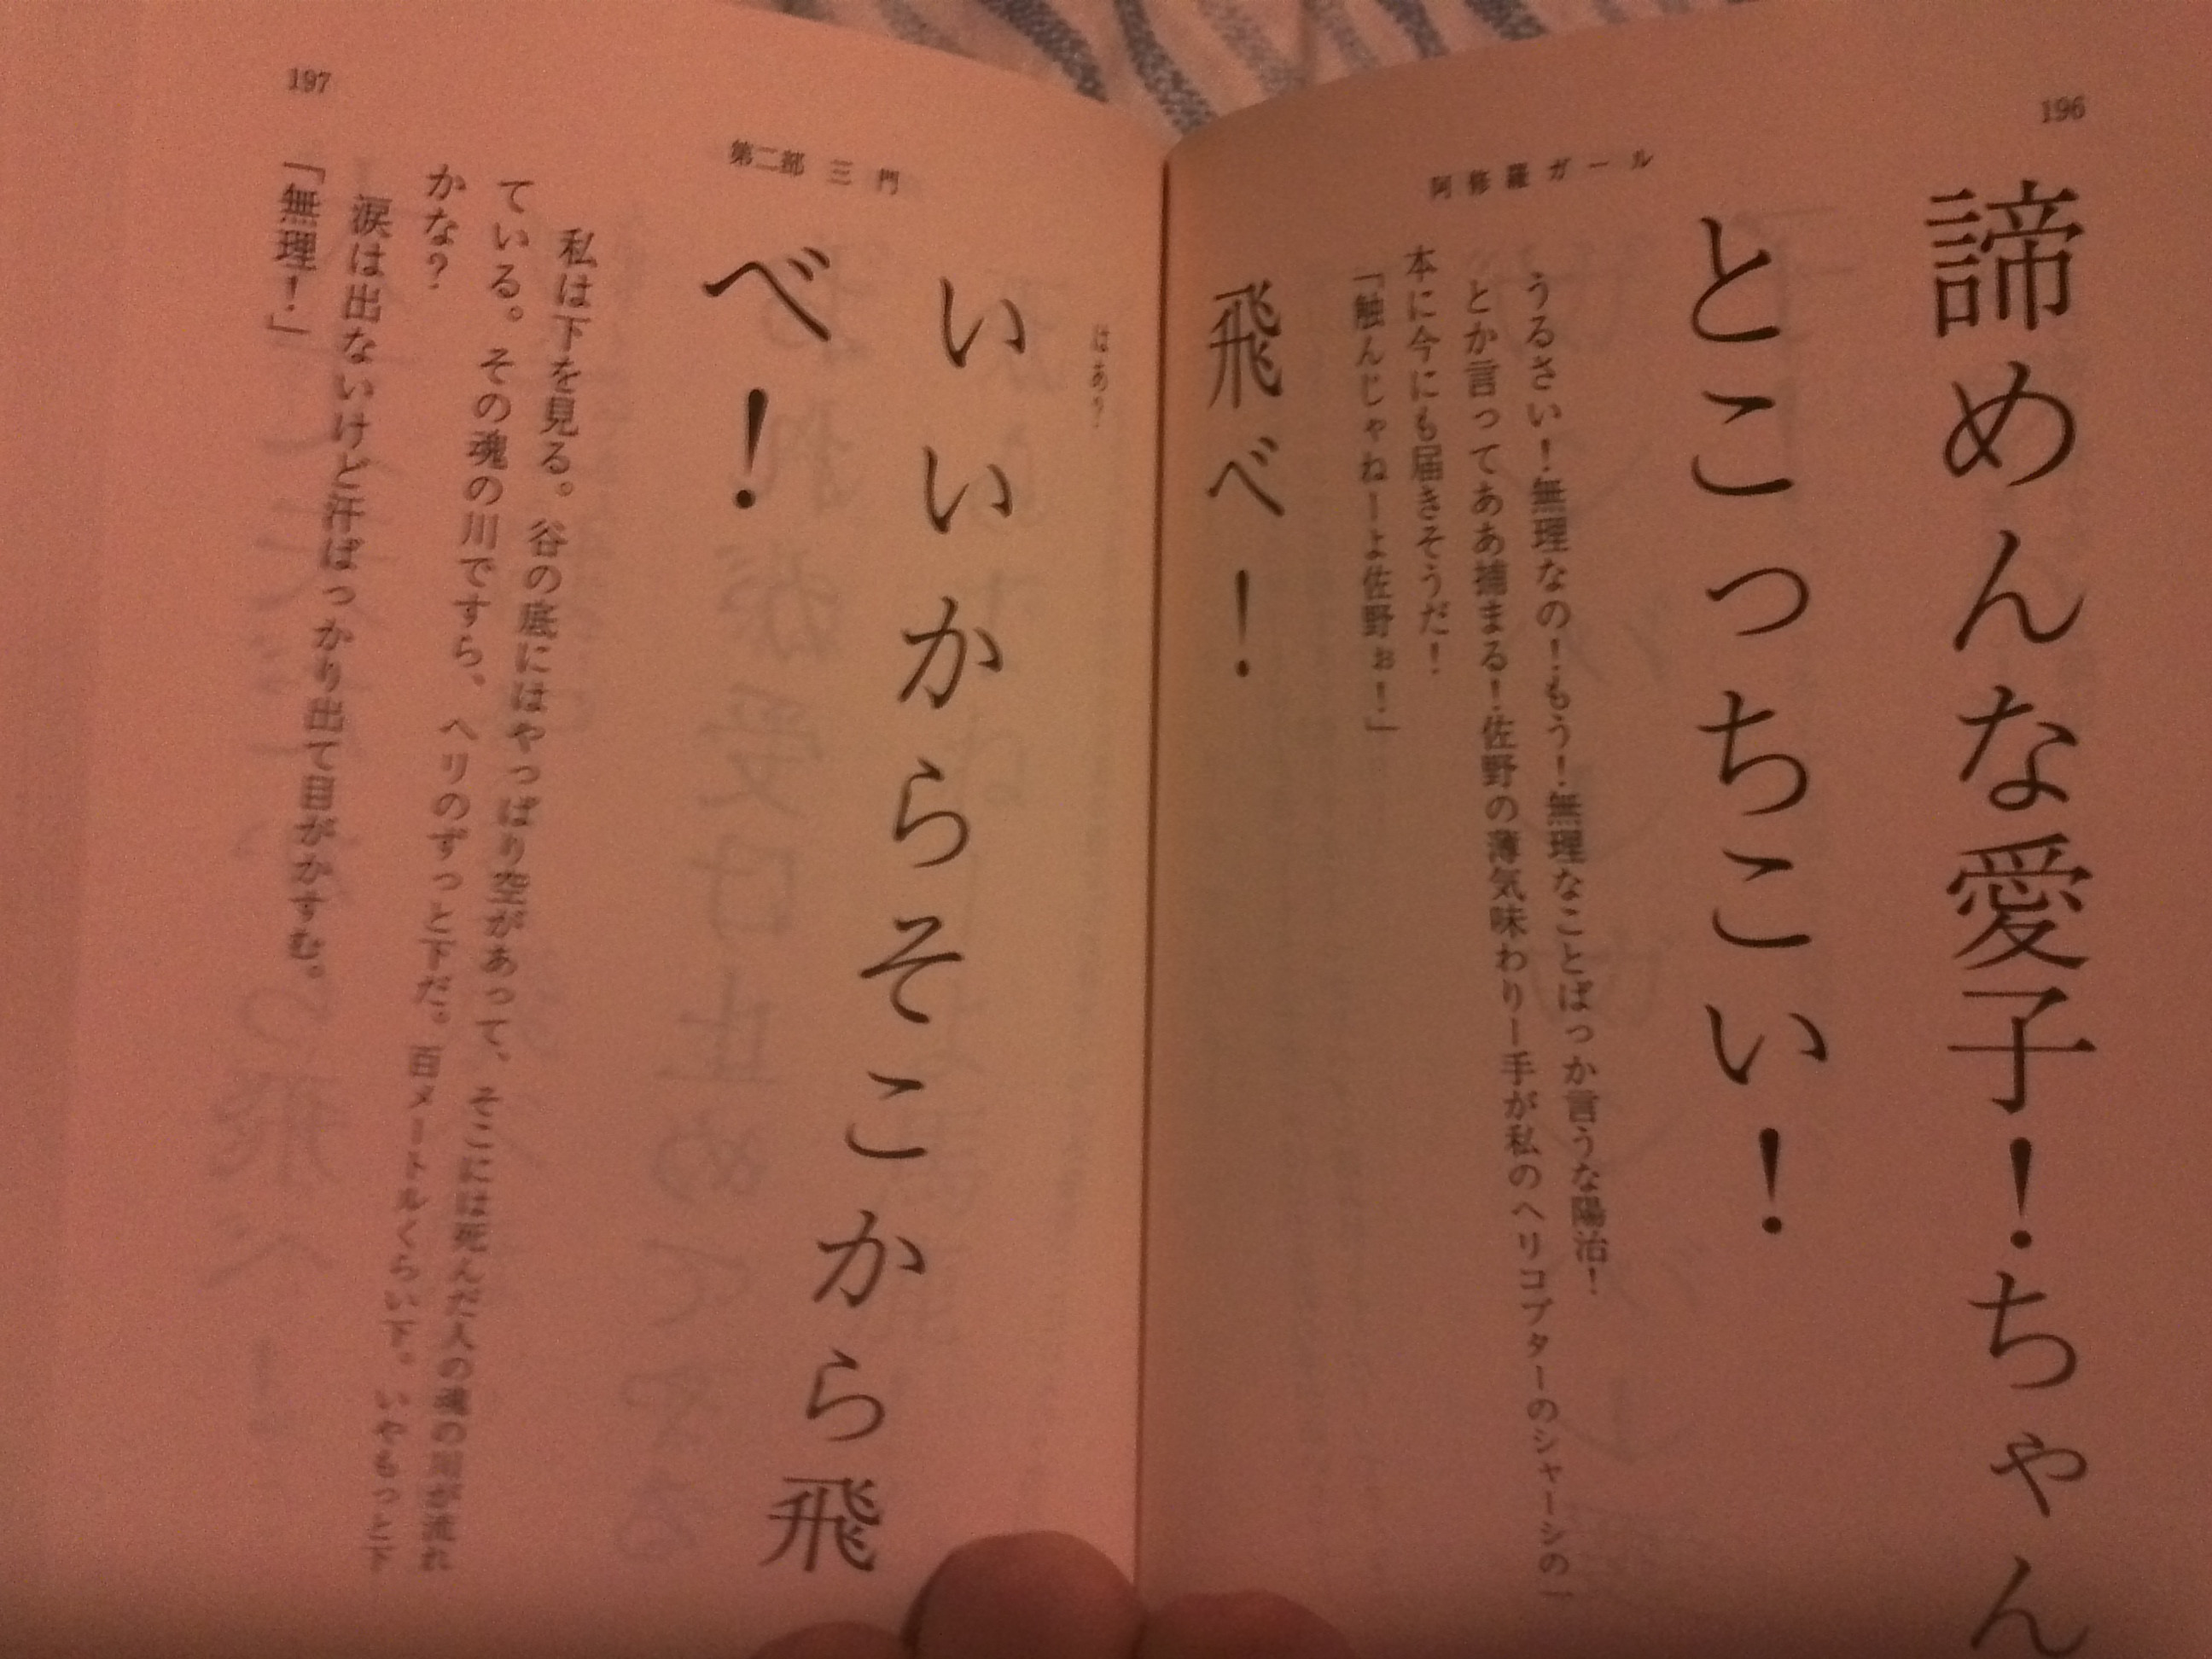 196
諦めんな愛子!ちゃん
とこっちこい!
うるさい!無理なの!もう!無理なことばっか言うな陽治!
とか言ってああ捕まる!佐野の薄気味わりー手が私のヘリコプターのシャーシの一
本に今にも届きそうだ!
「触んじゃねーよ佐野ぉ!」
飛べ!
阿修羅ガール
197
第二部 三門
はあ?
いいからそこから飛
べ!
私は下を見る。谷の底にはやっぱり空があって、そこには死んだ人の魂の川が流れ
ている。その魂の川ですら、ヘリのずっと下だ。百メートルくらい下。いやもっと下
かな?
涙は出ないけど汗ばっかり出て目がかすむ。
「無理!」